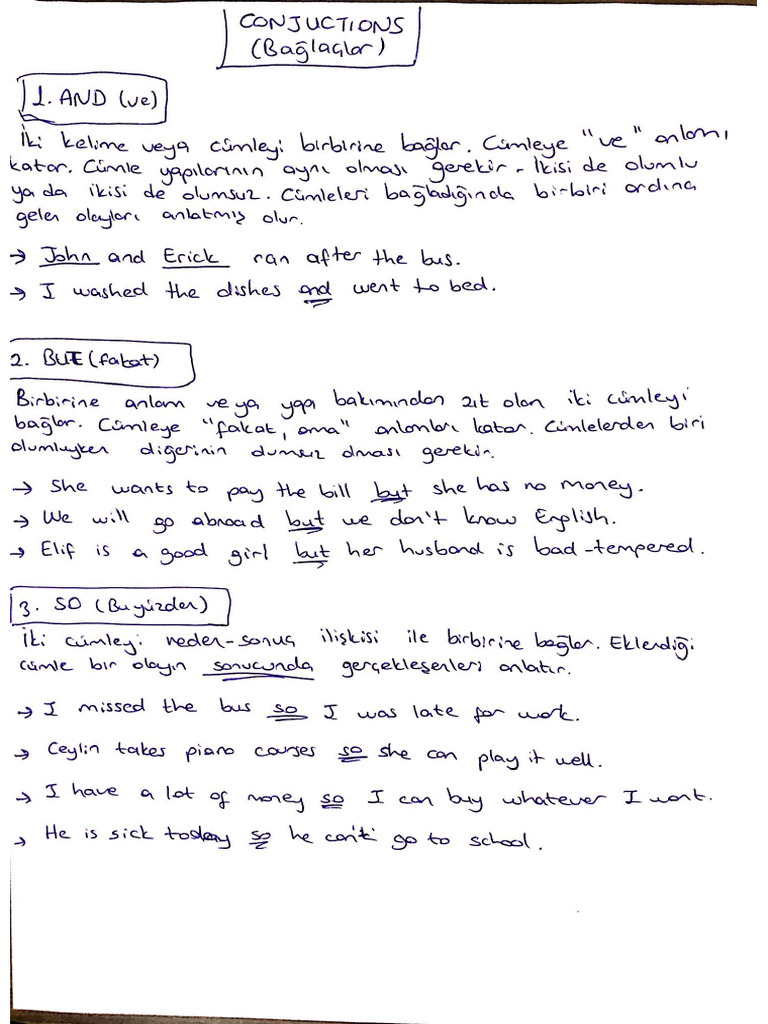 CONJUCTIONS
(Bağlaçlar)
1. AND (ve)
İki kelime veya cümleyi birbirine bağlar. Cümleye "ve" anlamı
katar. Cümle yapılarının aynı olması gerekir. İkisi de olumlu
ya da ikisi de olumsuz. Cümleleri bağladığında birbiri ardına
gelen olayları anlatmış olur.
→ John and Erick ran after the bus.
→ I washed the dishes and went to bed.
2. BUT (fakat)
Birbirine anlam veya yapı bakımından zıt olan iki cümleyi
bağlar. Cümleye "fakat, ama" anlamları katar. Cümlelerden biri
olumluyken diğerinin olumsuz olması gerekir.
→ She wants to pay the bill but she has no money.
→ We will go abroad but we don't know English.
→ Elif is a good girl but her husband is bad-tempered.
3. SO (Bu yüzden)
İki cümleyi neden-sonuç ilişkisi ile birbirine bağlar. Eklendiği
cümle bir olayın sonucunda gerçekleşenleri anlatır.
→ I missed the bus so I was late for work.
→ Ceylin takes piano courses so she can play it well.
→ I have a lot of money so I can buy whatever I want.
→ He is sick today so he can't go to school.